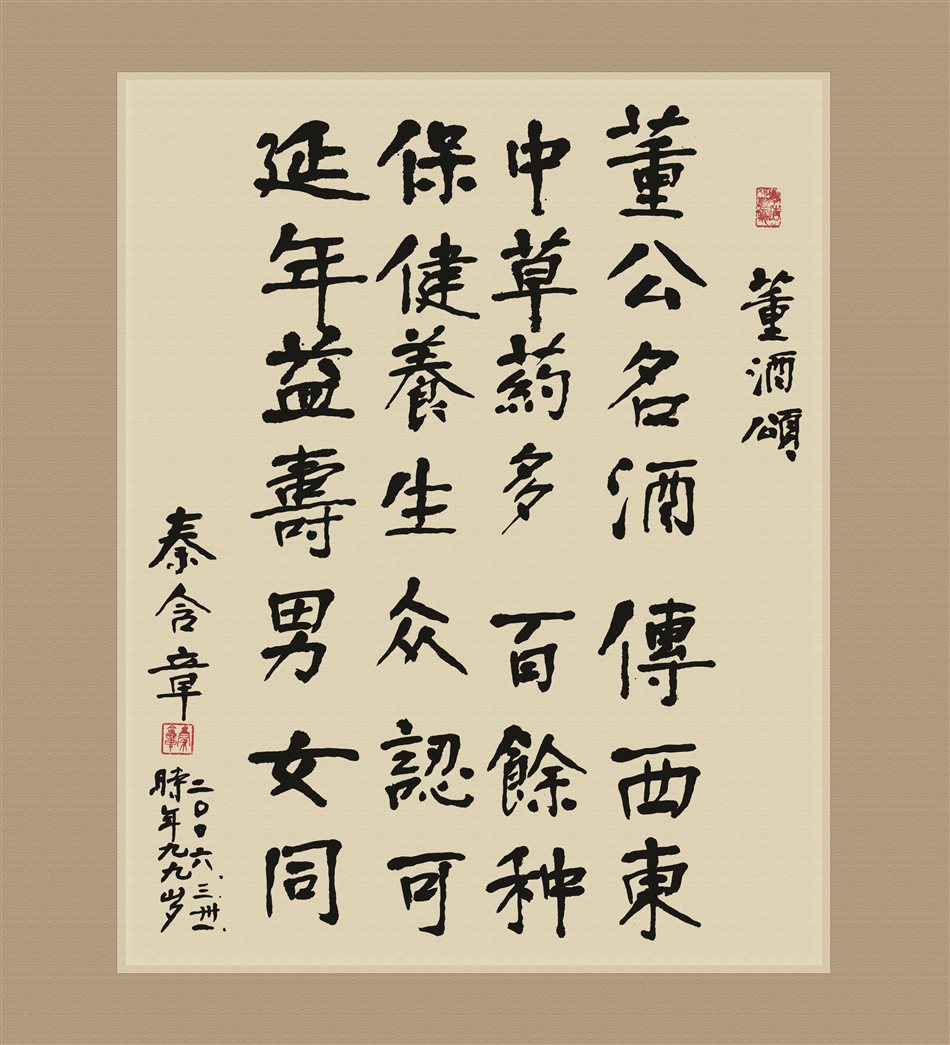 董酒頌
董公名酒傳西東
中草葯多百餘种
保健養生众認可
延年益壽男女同
秦含章
二〇〇六.三.卅一.
時年九九岁